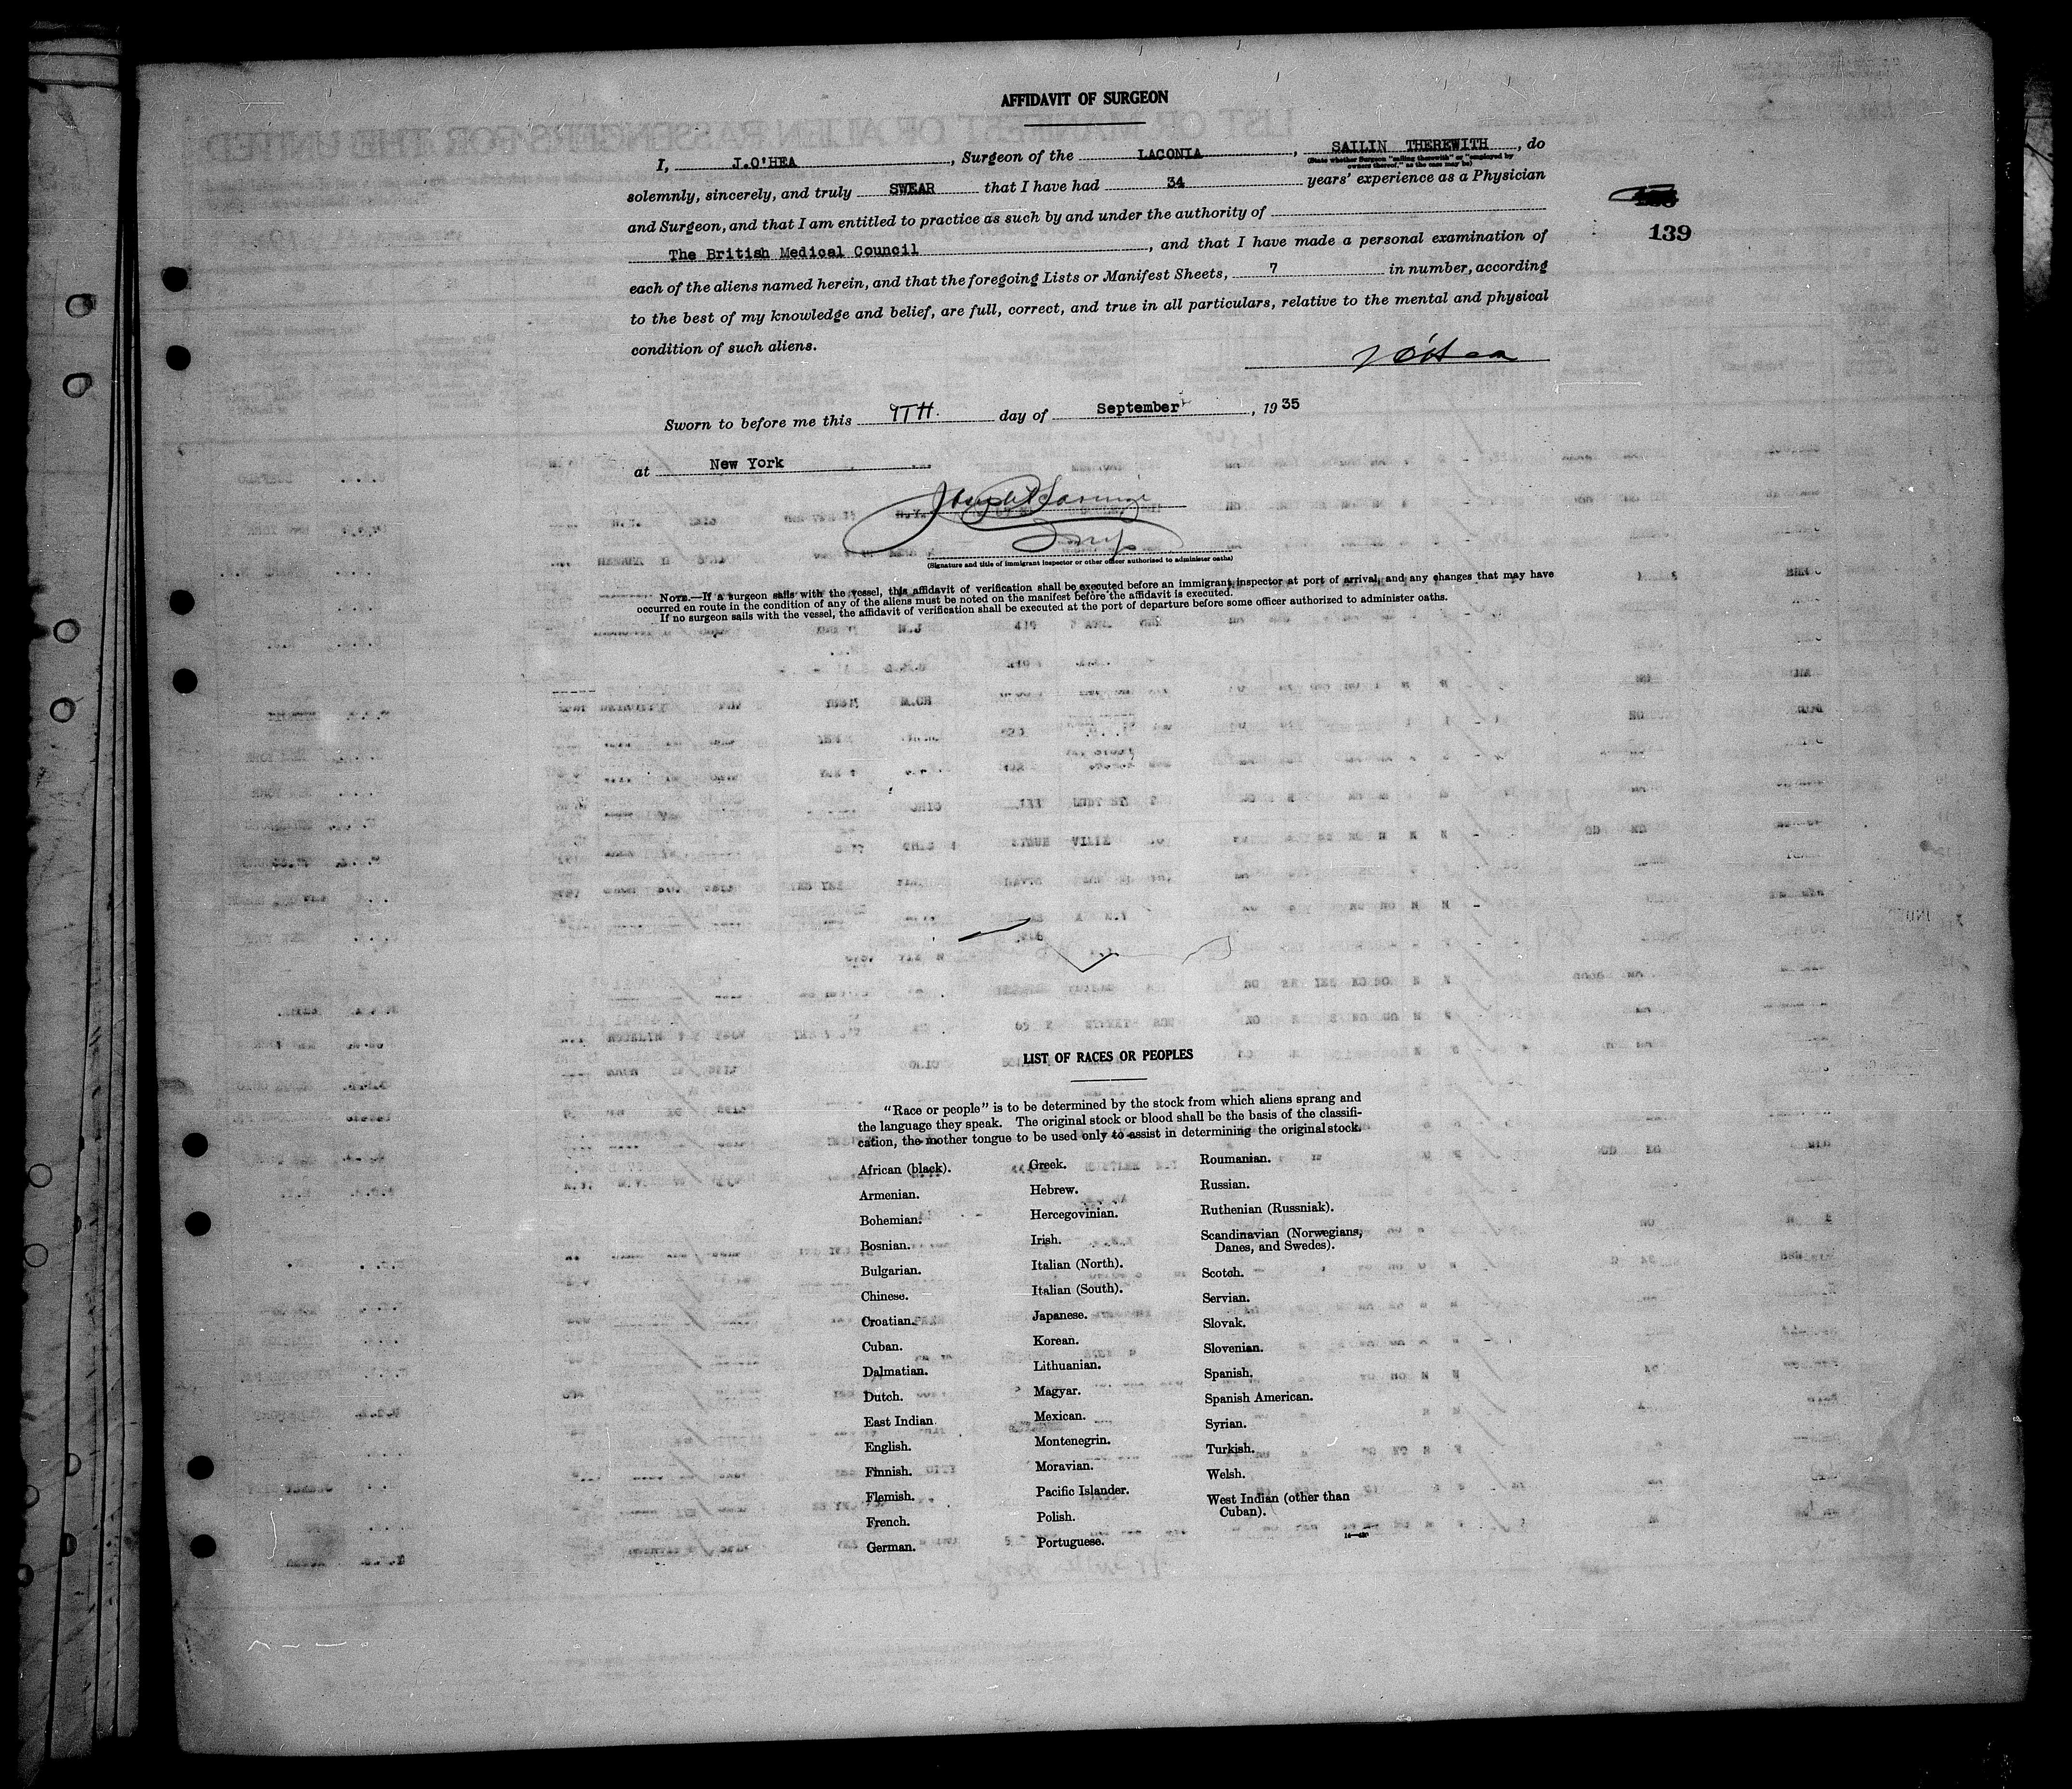 AFFIDAVIT OF SURGEON
I, J.O'HEA, Surgeon of the LACONIA, SAILIN THEREWITH, do
(State whether Surgeon "sailing therewith" or "employed by
owners thereof," as the case may be)
solemnly, sincerely, and truly SWEAR that I have had 34 years' experience as a Physician
and Surgeon, and that I am entitled to practice as such by and under the authority of
139
The British Medical Council, and that I have made a personal examination of
each of the aliens named herein, and that the foregoing Lists or Manifest Sheets, 7 in number, according
to the best of my knowledge and belief, are full, correct, and true in all particulars, relative to the mental and physical
condition of such aliens.
J O'Hea
Sworn to before me this 9TH. day of September, 1935
at New York
(Signature and title of immigrant inspector or other officer authorized to administer oaths)
NOTE.—If a surgeon sails with the vessel, this affidavit of verification shall be executed before an immigrant inspector at port of arrival, and any changes that may have
occurred en route in the condition of any of the aliens must be noted on the manifest before the affidavit is executed.
If no surgeon sails with the vessel, the affidavit of verification shall be executed at the port of departure before some officer authorized to administer oaths.
LIST OF RACES OR PEOPLES
"Race or people" is to be determined by the stock from which aliens sprang and
the language they speak. The original stock or blood shall be the basis of the classifi-
cation, the mother tongue to be used only to assist in determining the original stock.
African (black).
Armenian.
Bohemian.
Bosnian.
Bulgarian.
Chinese.
Croatian.
Cuban.
Dalmatian.
Dutch.
East Indian.
English.
Finnish.
Flemish.
French.
German.
Greek.
Hebrew.
Hercegovinian.
Irish.
Italian (North).
Italian (South).
Japanese.
Korean.
Lithuanian.
Magyar.
Mexican.
Montenegrin.
Moravian.
Pacific Islander.
Polish.
Portuguese.
Roumanian.
Russian.
Ruthenian (Russniak).
Scandinavian (Norwegians,
Danes, and Swedes).
Scotch.
Servian.
Slovak.
Slovenian.
Spanish.
Spanish American.
Syrian.
Turkish.
Welsh.
West Indian (other than
Cuban).